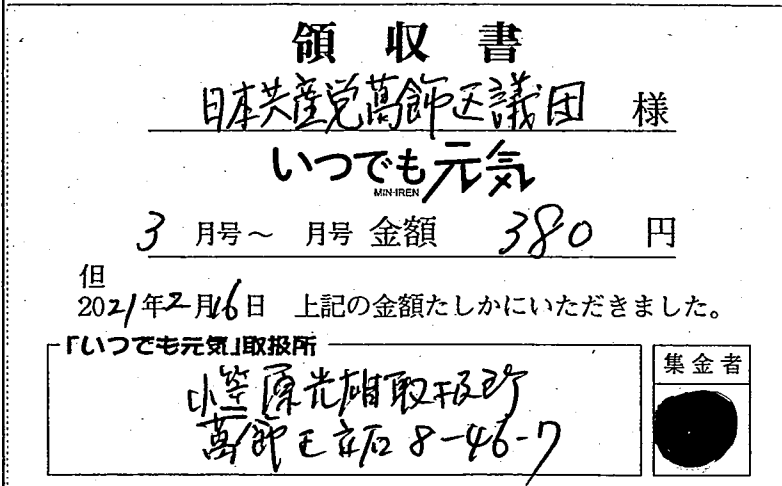 領収書
日本共産党葛飾区議団 様
いつでも元気
MIN-IREN
3 月号～ 月号 金額 380 円
但
2021年2月16日 上記の金額たしかにいただきました。
「いつでも元気」取扱所
集金者
小笠原光雄取扱所
葛飾区立石8-46-7